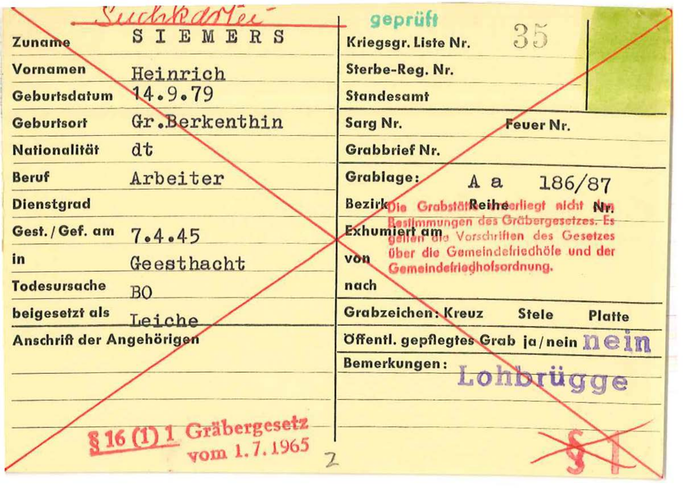 Suchkartei
geprüft
Zuname SIEMERS
Vornamen Heinrich
Geburtsdatum 14.9.79
Geburtsort Gr.Berkenthin
Nationalität dt
Beruf Arbeiter
Dienstgrad
Gest./Gef. am 7.4.45
in Geesthacht
Todesursache BO
beigesetzt als Leiche
Anschrift der Angehörigen
§ 16 (1) 1 Gräbergesetz
vom 1.7.1965
2
Kriegsgr. Liste Nr. 35
Sterbe-Reg. Nr.
Standesamt
Sarg Nr. Feuer Nr.
Grabbrief Nr.
Grablage: A a 186/87
Bezirk Reihe Nr.
Die Grabstätte unterliegt nicht den
Bestimmungen des Gräbergesetzes. Es
gelten die Vorschriften des Gesetzes
über die Gemeindefriedhöfe und der
Gemeindefriedhofsordnung.
Exhumiert am
von
nach
Grabzeichen: Kreuz Stele Platte
Öffentl. gepflegtes Grab ja/nein nein
Bemerkungen:
Lohbrügge
§ 1